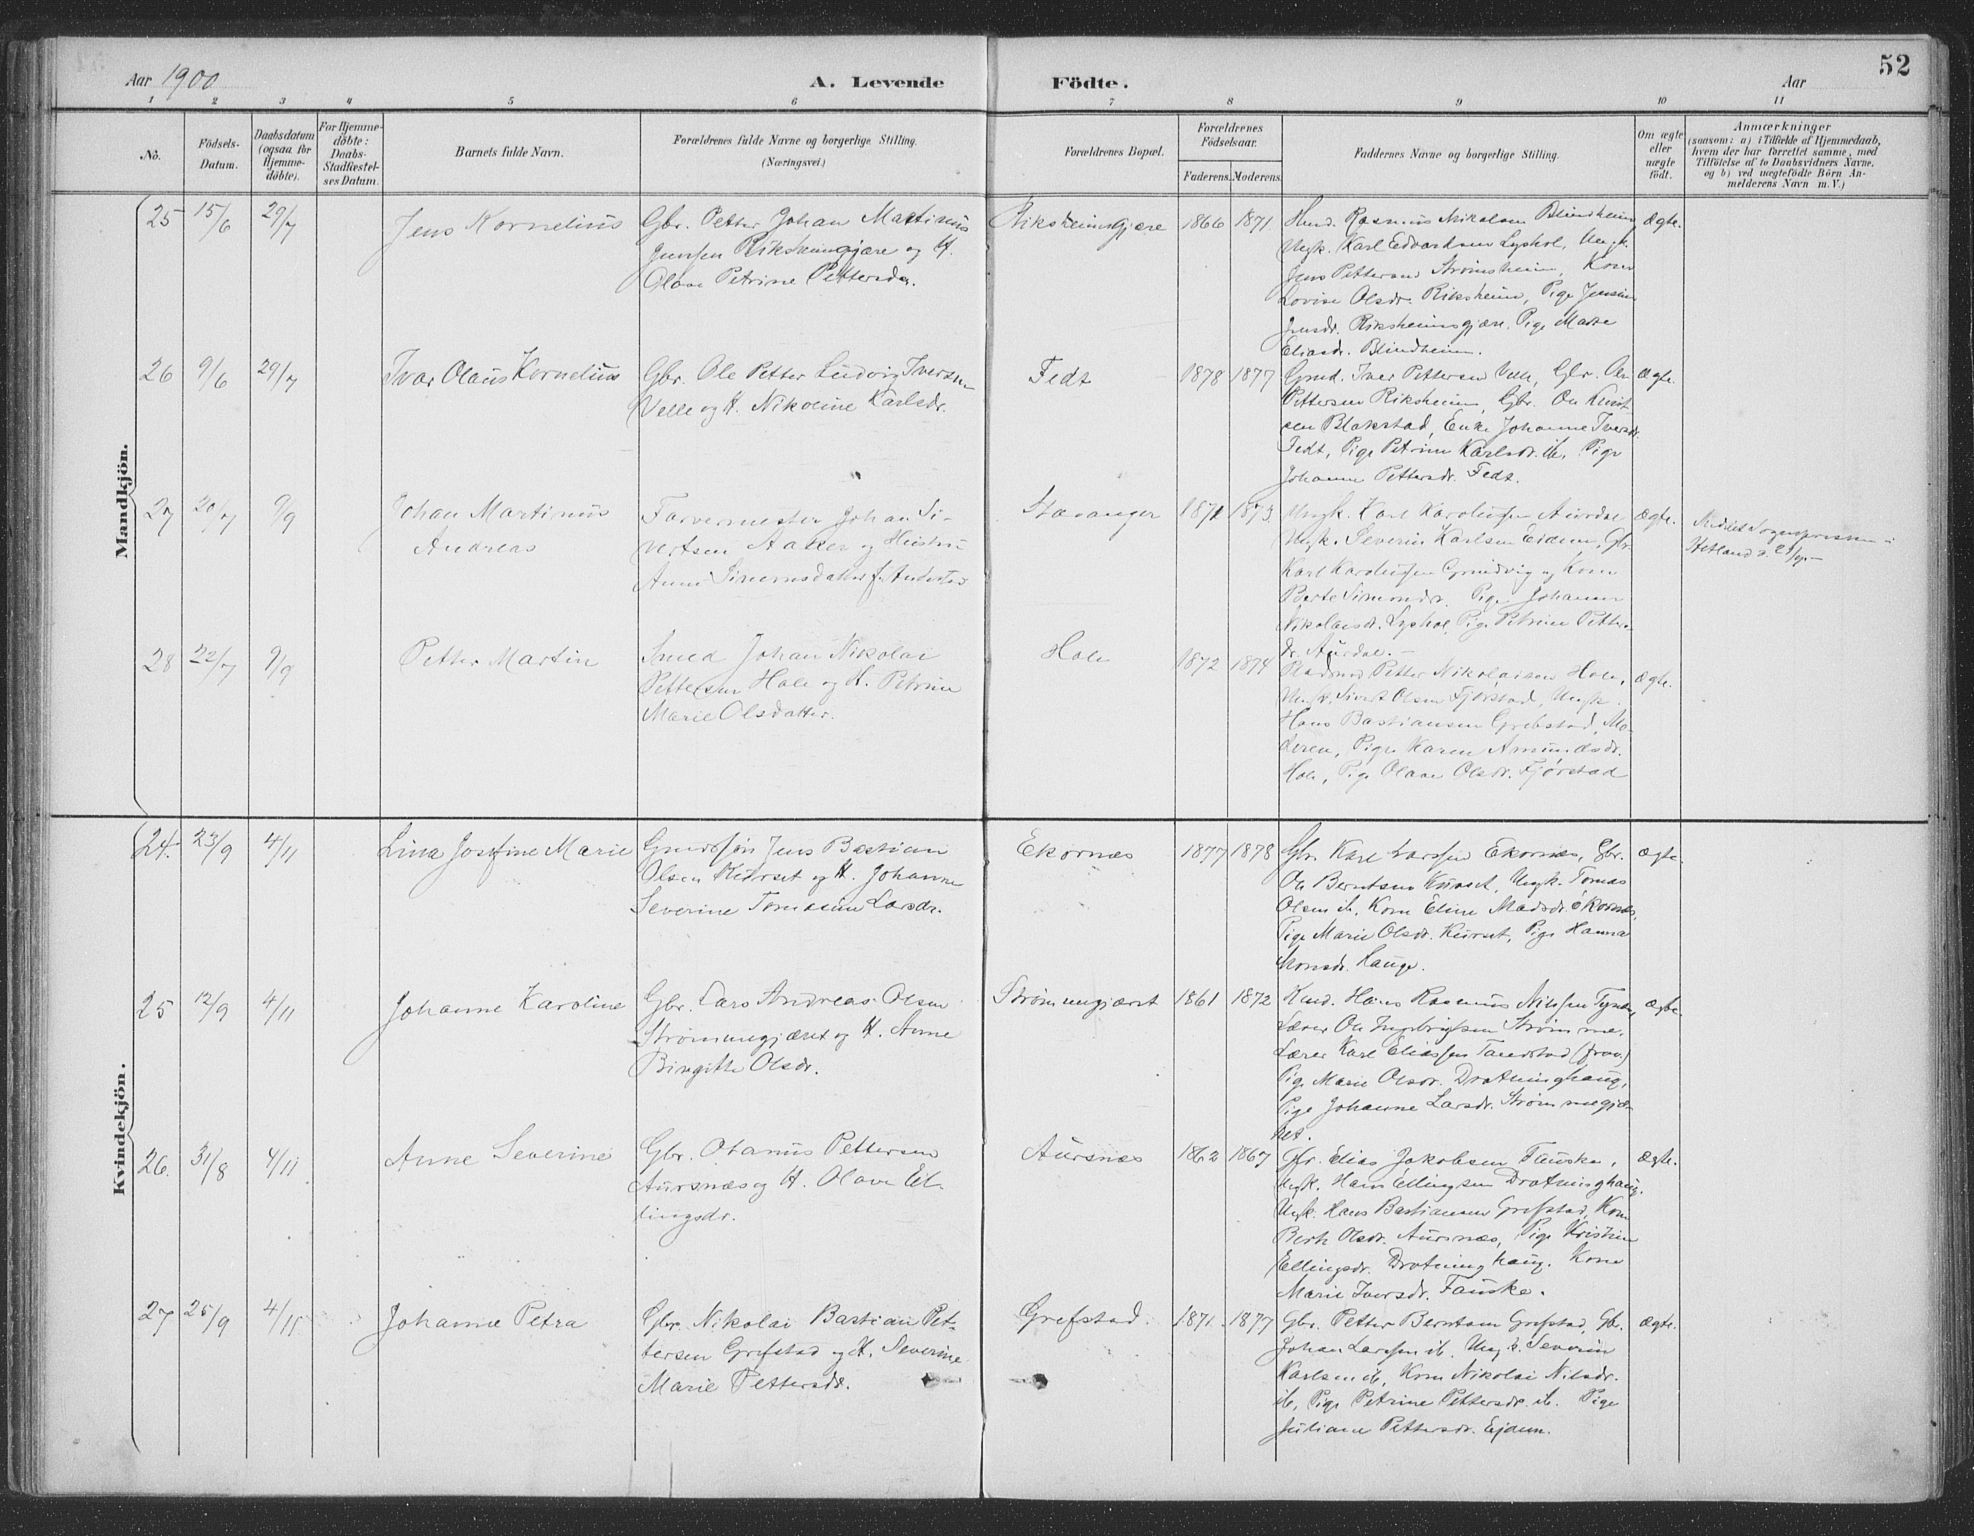 52
Aar 1900
A. Levende Födte.
Aar
1 2 3 4 5 6 7 8 9 10 11
No.
Födsels-
Datum.
Daabsdatum
(ogsaa for
Hjemme-
döbte).
For Hjemme-
döbte:
Daabs-
Stadfæstel-
ses Datum.
Barnets fulde Navn.
Forældrenes fulde Navne og borgerlige Stilling.
(Næringsvei.)
Forældrenes Bopæl.
Forældrenes
Födselsaar.
Faderens. Moderens.
Faddernes Navne og borgerlige Stilling.
Om ægte
eller
uægte
födt.
Anmærkninger
(saasom: a) i Tilfælde af Hjemmedaab,
hvem der har forrettet samme, med
Tilföielse af to Daabsvidners Navne,
og b) ved uægtefödte Börn An-
melderens Navn m. V.)
Mandkjön.
25 15/6 29/7
Jens Kornelius
Gbr. Petter Johan Martinus
Jenssen Riksheimgjære og H.
Olave Petrine Pettersdr.
Riksheimgjære
1866 1871
Rasmus Nikolsen Blindheim
Ungk. Karl Edvardsen Lyshol, Ungk.
Jens Petersen Strømsheim, Kone
Lovise Olsdr. Riksheim, Pige Jensine
Jensdr. Riksheimgjære, Pige Marte
Eliasdr. Blindheim.
ægte.
26 9/6 29/7
Ivar Olaus Kornelius
Gbr. Ole Petter Ludvig Iversen
Velle og H. Nikoline Karlsdr.
Fedt
1878 1877
Gmd. Iver Pettersen Velle, Gbr. Ole
Pettersen Riksheim, Gbr. Ole Knut-
sen Blakstad, Enke Johanne Iversdr.
Fedt, Pige Petrine Karlsdr. ib., Pige
Johanne Pettersdr. Fedt.
ægte.
27 20/7 9/9
Johan Martinus
Andreas
Farvermester Johan Si-
vertsen Aaker og Hustru
Anne Simonsdatter
Stavanger
1871 1873
Ungk. Karl Karolussen Aurdal
Ungk. Severin Karlsen Eidem, Gbr.
Karl Karolussen Grundvig og Kone
Berte Simonsdr. Pige Johanne
Nikolaisdr. Lyshol, Pige Petrine Petters-
dr. Aurdal.
ægte.
Meddelt Sognepresten i
Hetland
28 22/7 9/9
Petter Martin
Smed Johan Nikolai
Pettersen Hole og H. Petrine
Marie Olsdatter.
Hole
1872 1874
Petter Nikolaisen Hole,
Ungk. Sivert Olsen Fjørstad, Ungk.
Hans Bastiansen Grebstad, Mo-
deren, Pige Karen Amundsdr.
Hole, Pige Olave Olsdr. Fjørstad
ægte.
Kvindekjön.
24. 23/9 4/11
Lina Josefine Marie
Gmdssøn Jens Bastian
Olsen Kurset og H. Johanne
Severine Tomasine Larsdr.
Ekornæs
1877 1878
Gbr. Karl Larssen Ekornæs, Gbr.
Ole Berntsen Kurset, Ungk. Tomas
Olsen ib, Kone Eline Madsdr. Ekornæs,
Pige Marie Olsdr. Kurset, Pige Hanna
Monsdr. Hauge.
ægte.
25 12/9 4/11
Johanne Karoline
Gbr. Lars Andreas Olsen
Strømmegjæret og H. Anne
Birgitte Olsdr.
Strømmegjæret
1861 1872
Hans Rasmus Nilssen
Lærer Ole Ingebrigtsen Strømme,
Lærer Karl Eliassen Tandstad (frav.)
Pige Marie Olsdr. Drotninghaug,
Pige Johanne Larsdr. Strømmegjæ-
ret.
ægte.
26. 31/8 4/11
Anne Severine
Gbr. Otanus Pettersen
Aursnæs og H. Olave El-
lingsdr.
Aursnæs
1862 1867
Gbr. Elias Jakobsen Fauske,
Ungk. Hans Ellingsen Drotninghaug,
Ungk. Hans Bastiansen Grefstad, Kone
Berte Olsdr. Aursnæs, Pige Kristine
Ellingsdr. Drotninghaug. Kone
Marie Iversdr. Fauske.
ægte.
27 25/9 4/11
Johanne Petra
Gbr. Nikolai Bastian Pet-
tersen Grefstad og H. Severine
Marie Pettersdr.
Grefstad.
1871. 1877
Gbr. Petter Berntsen Grefstad, Gbr.
Johan Larssen ib. Ungk. Severin
Karlsen ib, Kone Nikolai Nilsdr.
ib, Pige Petrine Pettersdr. ib. Pige
Juliane Pettersdr. Ejdem.
ægte.